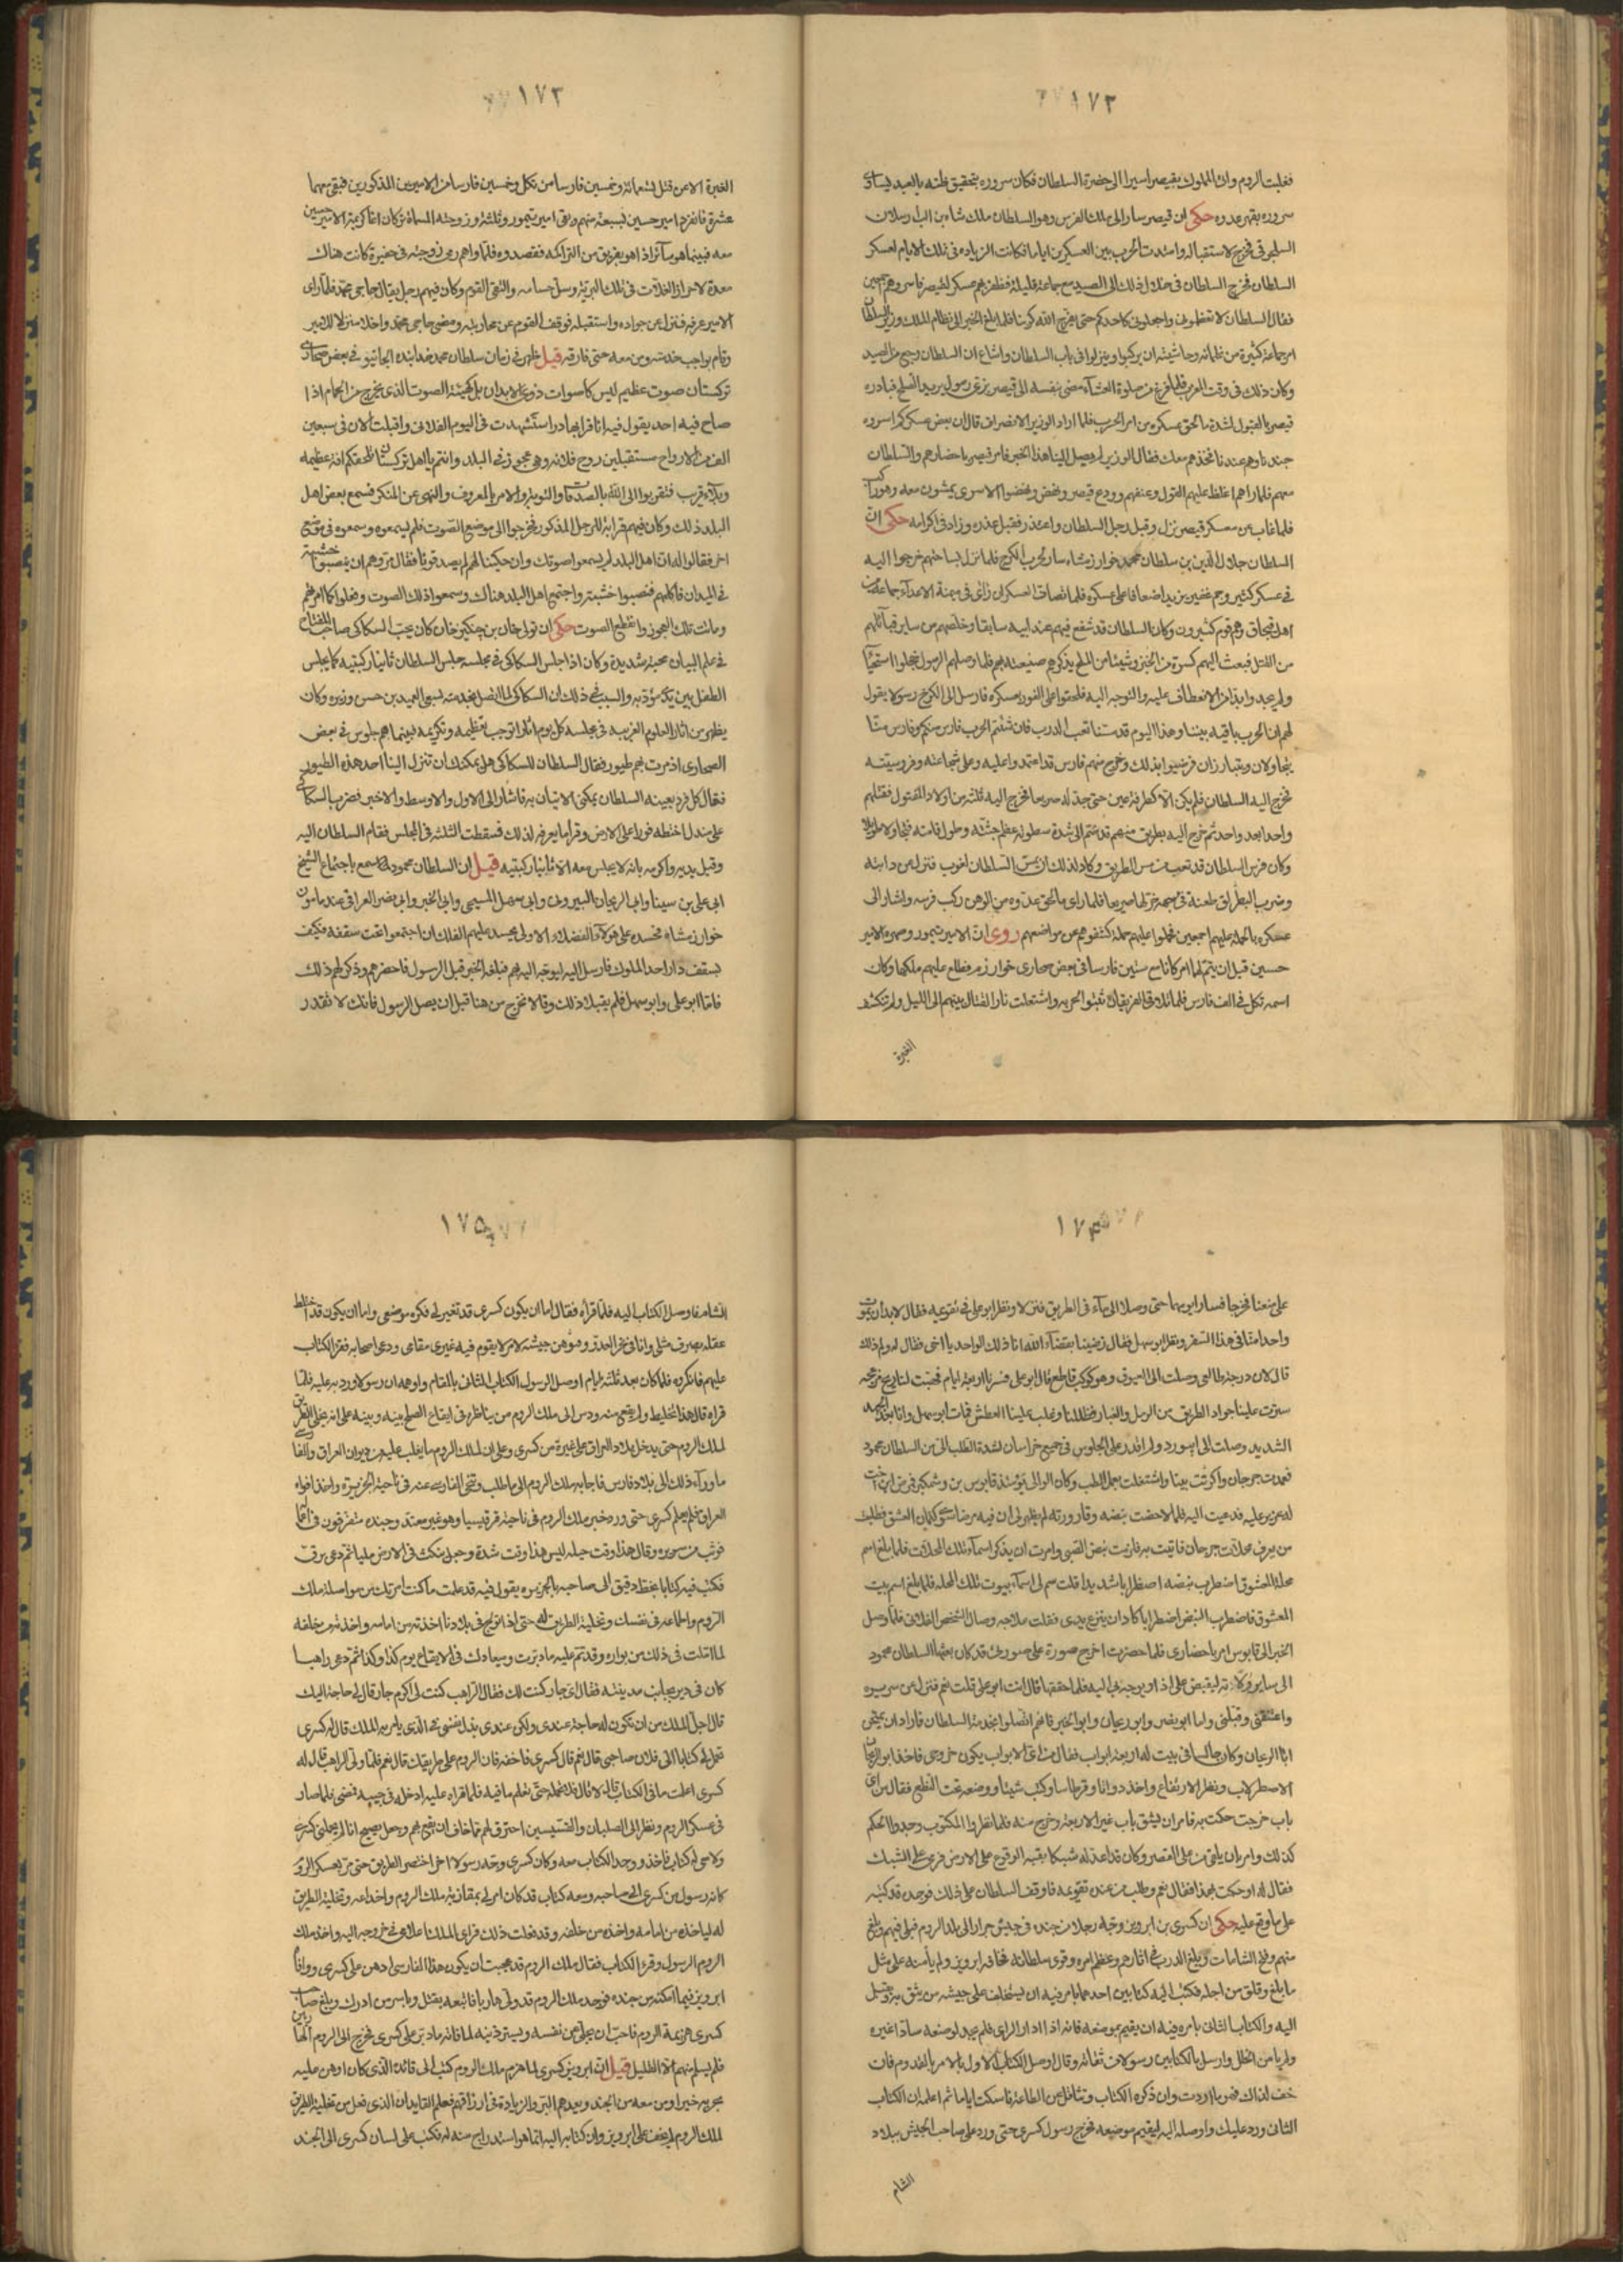 ١٧٢
فغلبت الروم وان الملوك بقيصر اسيرا الى حضرة السلطان فكان سروره بتحقيق ظنه بالعبد يساوى
سروره بقهر عدوه حكى ان قيصر سار الى ملك الفرس وهو السلطان ملك شاه بن الب ارسلان
السلجوقى فخرج لاستقباله وامتدت الحرب بين العسكرين اياما فكانت الزيادة فى تلك الايام لعسكر
السلطان فخرج السلطان فى خلال ذلك الى الصيد مع جماعة قليلة فظفر بهم عسكر لقيصر فاسروهم اجمعين
فقال السلطان لا تعظمونى واجعلونى كاحدكم حتى يفرج الله كربنا فلما بلغ الخبر الى نظام الملك وزير السلطان
امر جماعة كثيرة من غلمانه وحاشيته ان يركبوا وينزلوا فى باب السلطان واشاع ان السلطان رجع من الصيد
وكان ذلك فى وقت المغرب فلما فرغ من صلوة العشاء مضى بنفسه الى قيصر بزى رسول يريد الصلح فبادره
قيصر بالقبول لشدة ما لحق بعسكره من امر الحرب فلما اراد الوزير الانصراف قال ان بعض عسكركم اسروه
جندنا وهم عندنا فخذهم معك فقال الوزير لم يصل الينا هذا الخبر فامر قيصر باحضارهم والسلطان
معهم فلما راهم اغلظ عليهم القول وعنفهم وودع قيصر ونهض ونهضوا الاسرى يمشون معه وهو راكب
فلما غاب عن معسكر قيصر نزل وقبل رجل السلطان واعتذر فقبل عذره وزاد فى اكرامه حكى ان
السلطان جلال الدين بن سلطان محمد خوارزمشاه سار لحرب الكرج فلما نزل بساحتهم خرجوا اليه
فى عسكر كثير وجم غفير يزيد اضعافا على عسكره فلما تصاف العسكران راى فى ميمنة الاعداء جماعة من
اهل قبجاق وهم قوم كثيرون وكان السلطان قد شفع فيهم عند ابيه سابقا وخلصهم من ساير قبائلهم
من القتل فبعث اليهم كسرة من الخبز وشيئا من الملح يذكرهم صنيعته بهم فلما وصلهم الرسول خجلوا استحياء
ولم يجدوا بدا من الانعطاف عليه والتوجه اليه فلحقوا على الفور بعسكره فارسل الى الكرج رسولا يقول
لهم ان الحرب باقية بيننا وهذا اليوم قد مسنا تعب الدرب فان شئتم الحرب فارس منكم وفارس منا
يتجاولان ويتبارزان فرضيوا بذلك وخرج منهم فارس قد اعتمدوا عليه وعلى شجاعته وفروسيته
فخرج اليه السلطان فلم يكن الا كطرفة عين حتى جدله سريعا فخرج اليه ثلثة من اولاد المقتول فقتلهم
واحدا بعد واحد ثم خرج اليه بطريق منهم قد شتم الى شدة سطوته عظم جثته وطول قامته فتجاولا طويلا
وكان فرس السلطان قد تعب من مس الطريق وكاد لذلك ان يمس السلطان لغوب فنزل من دابته
وضرب البطريق طعنة فى جبهته تركها صريعا فلما راى ما لحق عدوه من الوهن ركب فرسه واشار الى
عسكره بالحملة عليهم اجمعين فحملوا عليهم حملة كشفوهم عن مواضعهم روى ان الامير تيمور وصهره الامير
حسين قبل ان يتم لهما امر كانا مع ستين فارسا فى بعض صحارى خوارزم فطلع عليهم ملكها وكان
اسمه تكل فى الف فارس فلما تلاقى الفريقان ثبتوا لحربه واشتعلت نار القتال بينهم الى الليل ولم تنكشف
الغبرة
١٧٣
الغبرة الا عن قتل تسعمائة وخمسين فارسا من تكل وخمسين فارسا من الاميرين المذكورين فبقى معهما
عشرة فانفرد امير حسين بسبعة منهم وبقى امير تيمور وثلثة وزوجته المسماة تركان اغا كريمة الامير حسين
معه فبينما هو سائر اذا هو بفريق من التراكمة فقصدوه فلما راهم رمى زوجته فى حفيرة كانت هناك
معدة لاحراز الغلات فى تلك البرية وسل حسامه والتقى القوم وكان فيهم رجل يقال حاجى محمد فلما راى
الامير عرفه فنزل عن جواده واستقبله فوقف القوم عن محاربته ومضى حاجى محمد واخلا منزلا للامير
وقام بواجب خدمته ومن معه حتى فارقه قيل ظهر فى زمان سلطان محمد خدابنده الجايتو فى بعض صحارى
تركستان صوت عظيم ليس كاصوات ذوى الابدان بل كهيئة الصوت الذى يخرج من الحمام اذا
صاح فيه احد يقول فيه انا قرابهادر استشهدت فى اليوم الفلانى واقبلت الان فى سبعين
الف من الارواح مستقبلين روح فلانة وهى عجوز فى البلد وانتم يا اهل تركستان تلحقكم افة عظيمة
وبلاء قريب فتقربوا الى الله بالصدقات والتوبة والامر بالمعروف والنهى عن المنكر فسمع بعض اهل
البلد ذلك وكان فيهم قرابة للرجل المذكور فخرجوا الى موضع الصوت فلم يسمعوه وسمعوه فى موضع
اخر فقالوا له ان اهل البلد لم يسمعوا صوتك وان حكينا لهم لم يصدقونا فقال مروهم ان ينصبوا خشبة
فى الميدان فاكلمهم فنصبوا خشبة واجتمع اهل البلد هناك وسمعوا ذلك الصوت وفعلوا كما امرهم
وماتت تلك العجوز وانقطع الصوت حكى ان تولى خان بن جنكيز خان كان يحب السكاكى صاحب المفتاح
فى علم البيان محبة شديدة وكان اذا جلس السكاكى فى مجلسه جلس السلطان ثانيا ركبتيه كما يجلس
الطفل بين يدى مؤدبه والسبب فى ذلك ان السكاكى لما اتصل بخدمته بسعى العميد بن حسن وزيره وكان
يظهر من اثار العلوم الغريبة فى مجلسه كل يوم اثارا توجب تعظيمه وتكريمه فبينما هم جلوس فى بعض
الصحارى اذ مرت بهم طيور فقال السلطان للسكاكى هل يمكنك ان تنزل الينا احد هذه الطيور
فقال كل فرد بعينه السلطان يمكن الاتيان به فاشار الى الاول والاوسط والاخير فضرب السكاكى
على مندل اختطه فورا على الارض وقرا ما يعرفه لذلك فسقطت الثلثة فى المجلس فقام السلطان اليه
وقبل يديه واكرمه بانه لا يجلس معه الا ثانيا ركبتيه قيل ان السلطان محمود لما سمع باجتماع الشيخ
ابى على بن سينا وابى الريحان البيرونى وابى سهل المسيحى وابى الخير وابى نصر العراقى عند مامون
خوارزمشاه فحسده على هؤلاء الفضلاء الاولى يحسد عليهم الفلك ان اجتمعوا تحت سقفه فكيف
بسقف دار احد الملوك فارسل اليه ليوجه اليه بهم فبلغه الخبر قبل الرسول فاحضرهم وذكر لهم ذلك
فاما ابو على وابو سهل فلم يقبلا ذلك وقالا نخرج من هنا قبل ان يصل الرسول فانك لا تقدر
١٧٤
على منعنا فخرجا فسارا يوما حتى وصلا الى ماء فى الطريق فنزلا ونظر ابو على فى تقويمه فقال لا بد ان يموت
واحد منا فى هذا السفر ونظر ابو سهل فقال رضينا بقضاء الله انا ذلك الواحد يا اخى فقال له ولم ذلك
قال لان درجة طالعى وصلت الى العيوق وهو كوكب قاطع قال ابو على فسرنا اربعة ايام فهبت لنا ريح مزعجة
سترت علينا جواد الطريق من الرمل والغبار فضللنا وغلب علينا العطش فمات ابو سهل وانا بعد الجهد
الشديد وصلت الى ابيورد ولم اقدر على الجلوس فى جميع خراسان لشدة الطلب الى من السلطان محمود
فعمدت جرجان واكريت بيتا واشتغلت بعمل الطب وكان الوالى يومئذ قابوس بن وشمكير فمرض ابن اخت
له عزيز عليه فدعيت اليه فلما لاحظت نبضه وقارورته لم يظهر لى ان فيه مرضا سوى كتمان العشق فطلبت
من يعرف محلات جرجان فاتيت به فلزمت نبض الصبى وامرت ان يذكر اسماء تلك المحلات فلما بلغ اسم
محلة المعشوق اضطرب نبضه اضطرابا شديدا قلت سم لى اسماء بيوت تلك المحلة فلما بلغ اسم بيت
المعشوق فاضطرب النبض اضطرابا كاد ان ينزع يدى فقلت علاجه وصال الشخص الفلانى فلما وصل
الخبر الى قابوس امر باحضارى فلما حضرت اخرج صورة على صورتى قد كان بعثها السلطان محمود
الى ساير ولاته ليقبض على اذا ويوجه بى اليه فلما حققها قال انت ابو على قلت نعم فنزل عن سريره
واعتنقنى وقبلنى واما ابو نصر وابو ريحان وابو الخير فانهم اتصلوا بخدمة السلطان فاراد ان يمتحن
ابا الريحان وكان جالسا فى بيت له اربعة ابواب فقال من اى الابواب يكون خروجى فاخذ ابو الريحان
الاصطرلاب ونظر الارتفاع واخذ دواتا وقرطاسا وكتب شيئا ووضعه تحت النطع فقال من اى
باب خرجت حكمت به فامر ان يشق باب غير الاربعة وخرج منه فلما نظروا المكتوب وجدوا الحكم
كذلك وامر بان يلقى من على القصر وكان قد اعد له شبكا يقيه الوقوع على الارض فرمى على الشبك
فقال له او حكمت بهذا فقال نعم وطلب من عنده تقويمه فاوقف السلطان على ذلك فوجده قد كتبه
على ما وقع عليه حكى ان كسرى بن ابرويز وجه رجلا من جنده فى جيش جرار الى بلد الروم فبلى فيهم وبلغ
منهم وفتح الشامات وبلغ الدرب فى اثارهم وعظم امره وقوى سلطانه فخافه ابرويز ولم يأمنه على مثل
ما بلغ وقلق من اجله فكتب اليه كتابين احدهما يامره فيه ان يستخلف على جيشه من يثق به ويقبل
اليه والكتاب الثانى يامره فيه ان يقيم بموضعه فانه اذا ادار الراى فلم يجد لموضعه سادا غيره
ولم يامن الخلل وارسل بالكتابين رسولا من ثقاته وقال اوصل الكتاب الاول بالامر بالقدوم فان
خف لذلك فهو ما اردت وان ذكره الكتاب وتثاقل عن الطاعة فاسكت اياما ثم اعلمه ان الكتاب
الثانى ورد عليك واوصله اليه ليقيم موضعه فخرج رسول كسرى حتى ورد على صاحب الجيش ببلاد
الشام
١٧٥
الشام فاوصل الكتاب اليه فلما قرأه فقال اما ان يكون كسرى قد تغير لى فكره موضعى واما ان يكون قد اختلط
عقله بصرف مثلى وانا فى نحر العدو وتوهن جيشه لامر لا يقوم فيه غيرى مقامى ودعى اصحابه فقرأ الكتاب
عليهم فانكروه فلما كان بعد ثلثة ايام اوصل الرسول الكتاب الثانى بالمقام واوهمه ان رسولا ورد به عليه فلما
قراه قال هذا تخليط ولم يقع منه ودس الى ملك الروم من يناظره فى ايقاع الصلح بينه وبينه على انه يخلى الطريق
لملك الروم حتى يدخل بلاد العراق على غرة من كسرى وعلى ان لملك الروم ما يغلب عليه من ديوان العراق والفارسى
ما وراء ذلك الى بلاد فارس فاجابه ملك الروم الى ما طلب وتنحى الفارسى عنه فى ناحية الجزيرة واخذ افواه
العراق فلم يعلم كسرى حتى ورد خبر ملك الروم فى ناحية قرقيسيا وهو غير معتد وجنده متفرقون فى
فوثب من سريره وقال هذا وقت حيلة ليس هذا وقت شدة وجعل ينكث فى الارض مليا ثم دعى برق
فكتب فيه كتابا بخط دقيق الى صاحبه بالجزيرة يقول فيه قد علمت ما كنت امرتك من مواصلة ملك
الروم واطماعه فى نفسك وتخلية الطريق له حتى اذا تولج فى بلادنا اخذته من امامه واخذته من خلفه
لما املت فى ذلك من بواره وقد تم عليه ما دبرت وميعادك فى الايقاع يوم كذا وكذا ثم دعى راهبا
كان فى دير بجانب مدينته فقال اى جار كنت لك فقال الراهب كنت لى اكرم جار قال لى حاجة اليك
قال اجل الملك من ان تكون له حاجة عندى ولكن عندى بذل نفسى فى الذى يامر به الملك قال له كسرى
تحمل لى كتابا الى فلان صاحبى قال نعم قال كسرى فاخفه فان الروم على طريقك قال نعم فلما ولى الراهب قال له
كسرى اعلمت ما فى الكتاب قال لا قال فلا تحمله حتى تعلم ما فيه فلما قراه عليه ادخله فى جيبه فمضى فلما صار
فى عسكر الروم ونظر الى الصلبان والقسيسين احترق لهم مما خاف ان يقع بهم وجعل يصيح انا لم يحملنى كسرى
ولا معى له كتاب فاخذ ووجد الكتاب معه وكان كسرى وجه رسولا اخر اختصر الطريق حتى مر بعسكر الروم
كانه رسول من كسرى الى صاحبه ومعه كتاب قد كان امر لى بمقاربة ملك الروم واخداعه وتخلية الطريق
له لياخذه من امامه واخذه من خلفه وقد فعلت ذلك فراى الملك اعلامى فى خروجه اليه واخذ ملك
الروم الرسول وقرأ الكتاب فقال ملك الروم قد عجبت ان يكون هذا الفارسى ادهن على كسرى ووافا
ابرويز فيما امكنه من جنده فوجد ملك الروم قد ولى هاربا فاتبعه يقتل وياسر من ادرك وبلغ صاحب
كسرى هزيمة الروم فاحب ان يجلى عن نفسه ويستر ذنبه لما فاته ما دبر على كسرى فخرج الى الروم
فلم يسلم منهم الا القليل قيل ان ابرويز كسرى لما هزم ملك الروم كتب الى قائده الذى كان اوهن عليه
يجزيه خيرا ومن معه من الجند ويعدهم البر والزيادة فى ارزاقهم فعلم القايد ان الذى فعل من تخلية الطريق
لملك الروم لم يخف على ابرويز وان كتابه اليه انما هو استدراج منه له فكتب على لسان كسرى الى الجند